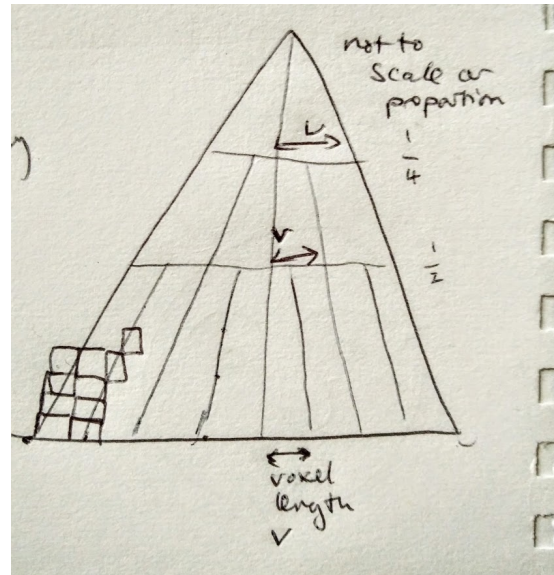 not to
scale or
proportion
v
1/4
v
1/2
voxel
length
v